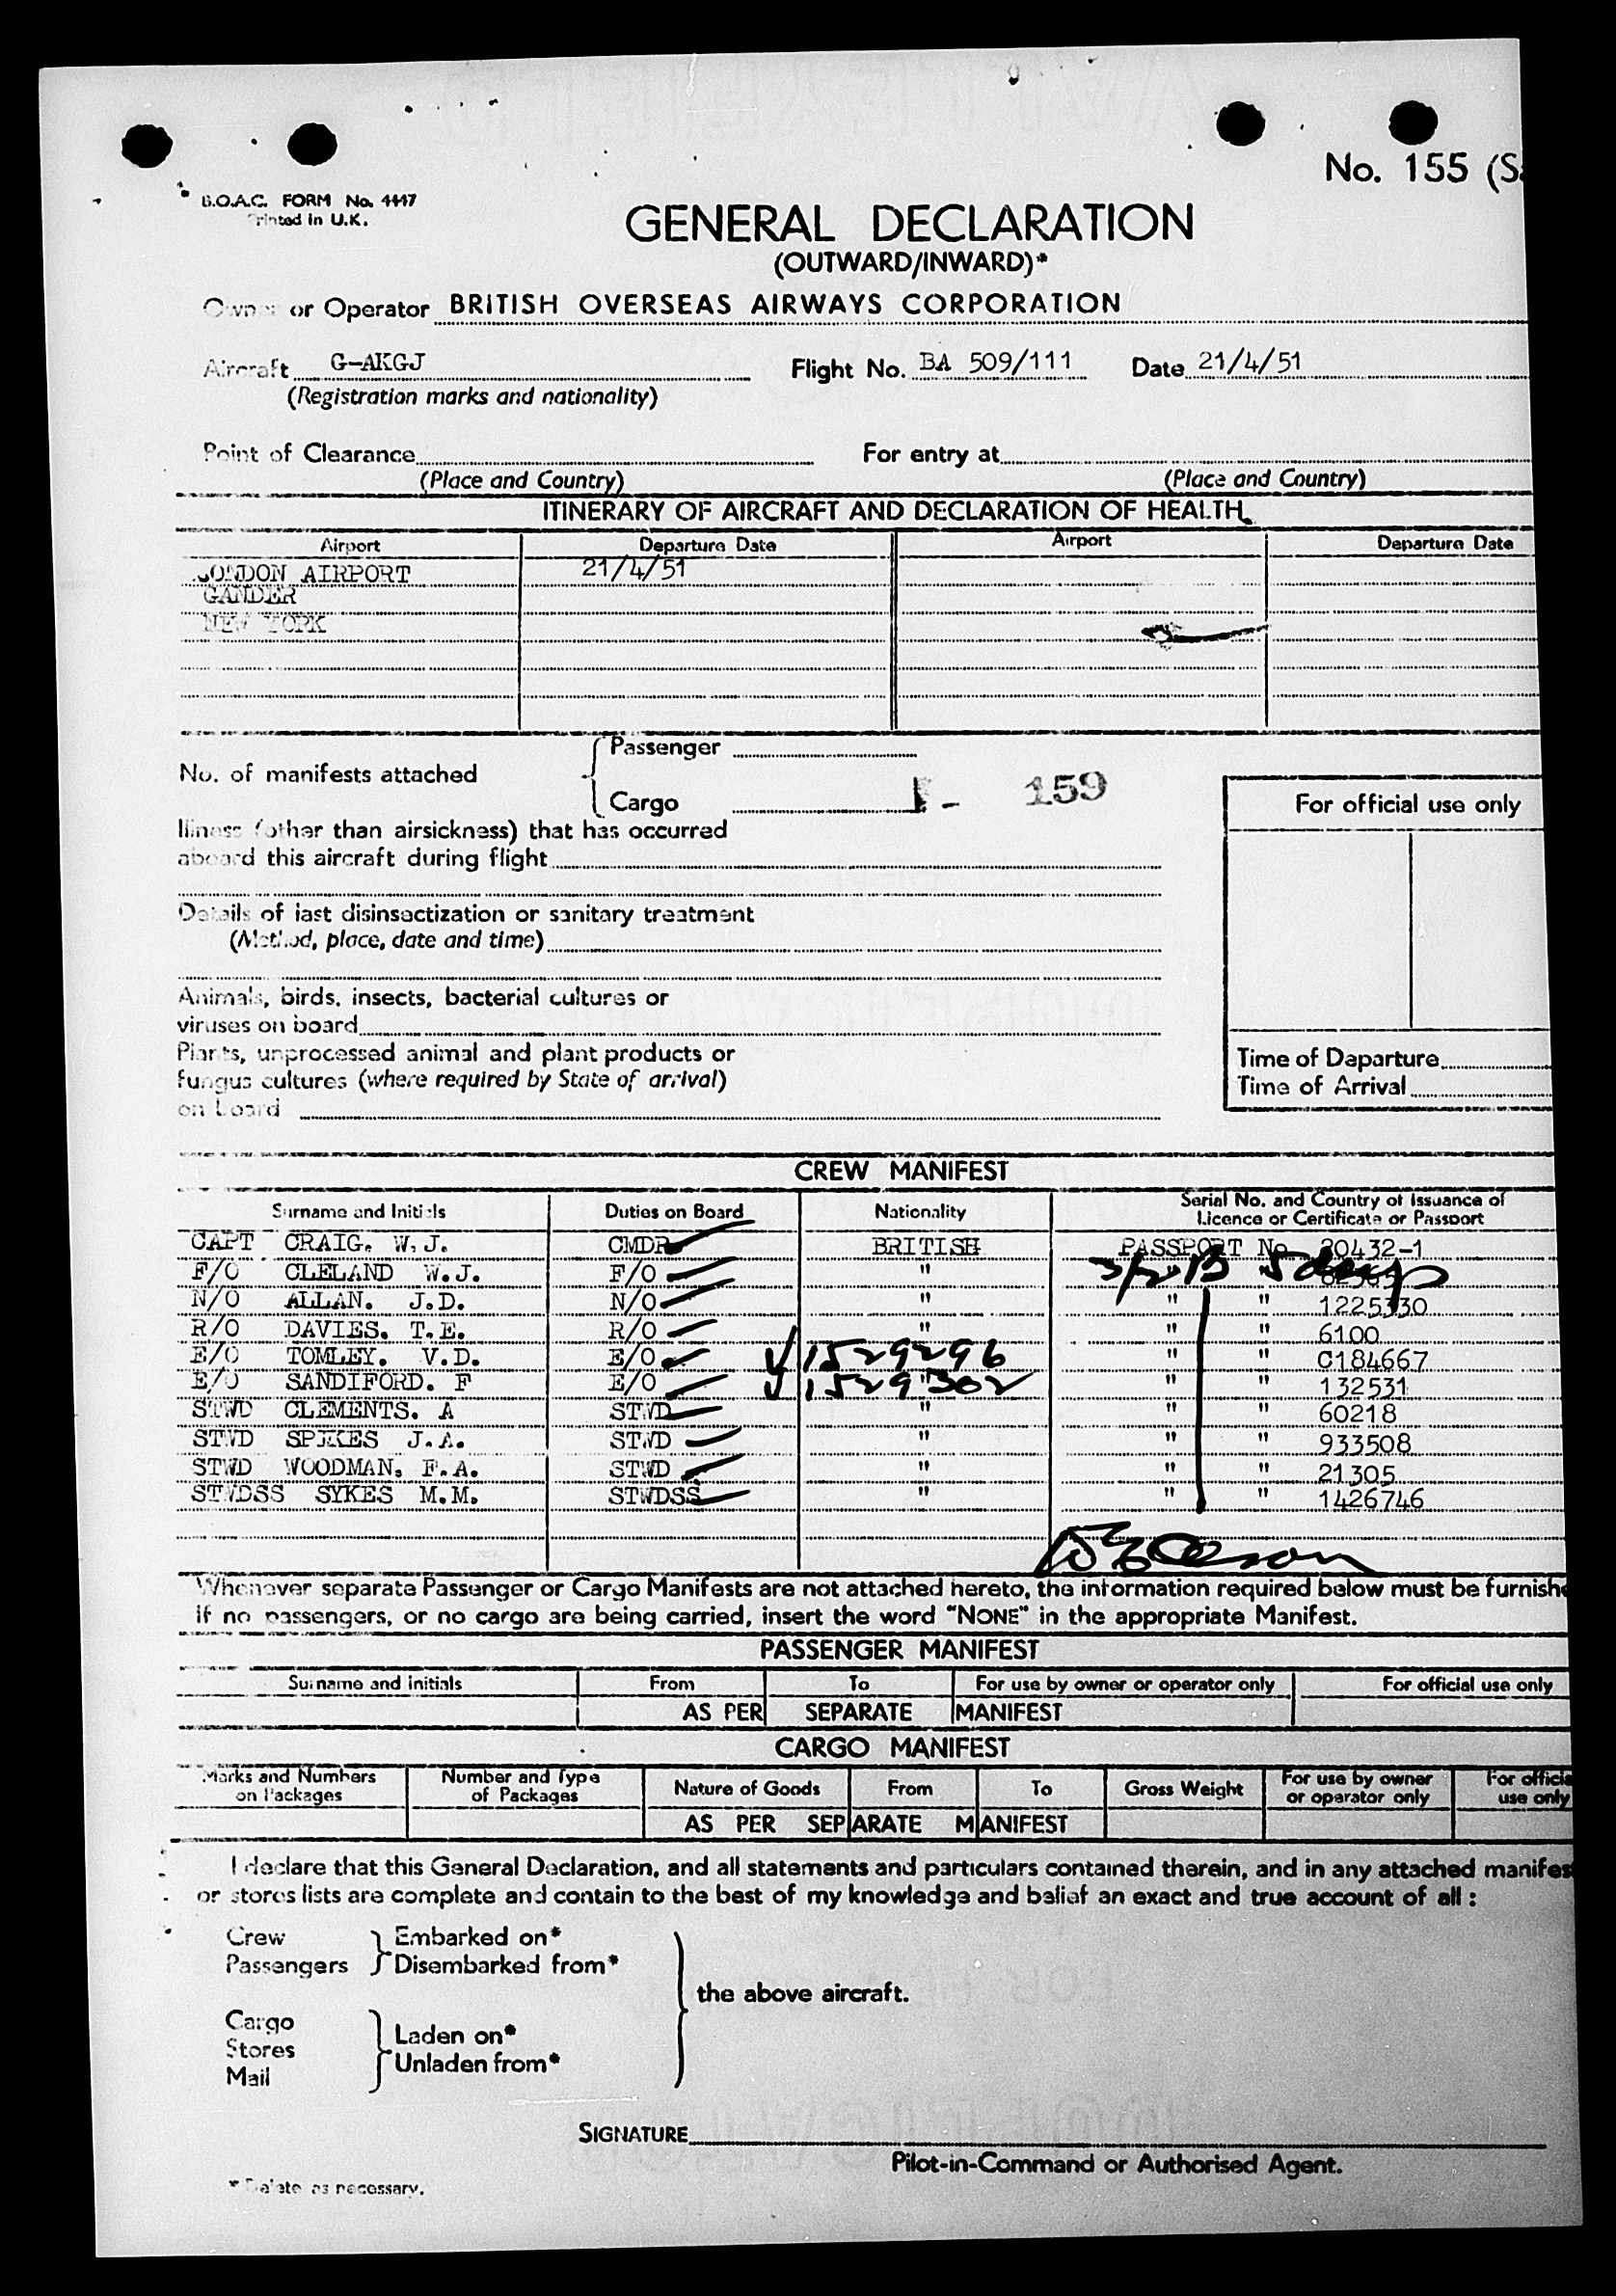 No. 155 (Sa
B.O.A.C. FORM No. 4447
Printed in U.K.
GENERAL DECLARATION
(OUTWARD/INWARD)*
Owner or Operator BRITISH OVERSEAS AIRWAYS CORPORATION
Aircraft G-AKGJ Flight No. BA 509/111 Date 21/4/51
(Registration marks and nationality)
Point of Clearance For entry at
(Place and Country) (Place and Country)
ITINERARY OF AIRCRAFT AND DECLARATION OF HEALTH
Airport Departure Date Airport Departure Date
LONDON AIRPORT 21/4/51
GANDER
NEW YORK
Passenger
No. of manifests attached
Cargo - 159
For official use only
Illness (other than airsickness) that has occurred
aboard this aircraft during flight
Details of last disinsectization or sanitary treatment
(Method, place, date and time)
Animals, birds, insects, bacterial cultures or
viruses on board
Plants, unprocessed animal and plant products or
fungus cultures (where required by State of arrival)
on board
Time of Departure
Time of Arrival
CREW MANIFEST
Surname and Initials Duties on Board Nationality Serial No. and Country of Issuance of
Licence or Certificate or Passport
CAPT CRAIG. W.J. CMDR BRITISH PASSPORT No 20432-1
F/O CLELAND W.J. F/O " B 5 days
N/O ALLAN. J.D. N/O " " " 1225330
R/O DAVIES. T.E. R/O " " " 6100
E/O TOMLEY. V.D. E/O √ 1529296 " " C184667
E/O SANDIFORD. F E/O √ 1529302 " " 132531
STWD CLEMENTS. A STWD " " " 60218
STWD SPIKES J.A. STWD " " " 933508
STWD WOODMAN. F.A. STWD " " " 21305
STWDSS SYKES M.M. STWDSS " " " 1426746
Whenever separate Passenger or Cargo Manifests are not attached hereto, the information required below must be furnishe
if no passengers, or no cargo are being carried, insert the word "NONE" in the appropriate Manifest.
PASSENGER MANIFEST
Surname and initials From To For use by owner or operator only For official use only
AS PER SEPARATE MANIFEST
CARGO MANIFEST
Marks and Numbers on Packages Number and Type of Packages Nature of Goods From To Gross Weight For use by owner or operator only For officia use only
AS PER SEPARATE MANIFEST
I declare that this General Declaration, and all statements and particulars contained therein, and in any attached manifes
or stores lists are complete and contain to the best of my knowledge and belief an exact and true account of all :
Crew Embarked on*
Passengers Disembarked from*
the above aircraft.
Cargo
Stores Laden on*
Mail Unladen from*
SIGNATURE
Pilot-in-Command or Authorised Agent.
* Delete as necessary.